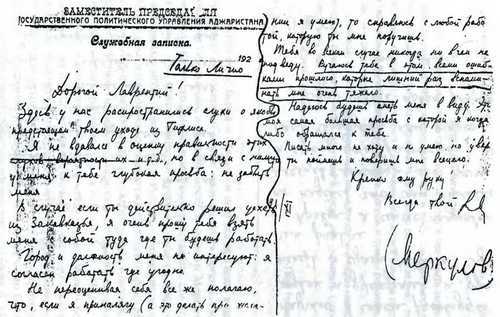 ЗАМЕСТИТЕЛЬ ПРЕДСЕДАТЕЛЯ
ГОСУДАРСТВЕННОГО ПОЛИТИЧЕСКОГО УПРАВЛЕНИЯ АДЖАРИСТАНА
Служебная записка.
192
Только лично
Дорогой Лаврентий!
Здесь у нас распространились слухи о якобы
предстоящем твоем уходе из Тифлиса.
Я не вдаваясь в оценку правильности этих
слухов, вероятности их и т.д., но в связи с ними
у меня к тебе глубокая просьба: не забыть
меня
В случае, если ты действительно решил уехать
из Закавказья, я очень прошу тебя взять
меня с собой туда где ты будешь работать.
Город и должность меня не интересуют: я
согласен работать где угодно.
Не переоценивая себя все же полагаю,
что, если я приналягу (а это делать при
нии я умею), то справлюсь с любой рабо
той, которую ты мне поручишь.
Тебя во всяком случае никогда ни в чем не
подведу. Ручаюсь тебе в этом всеми ошиб
ками прошлого, которые лишний раз
нать мне очень тяжело.
Надеюсь будешь иметь меня в виду. Это
моя самая большая просьба с которой я когда
либо обращался к тебе.
Писать много не хочу и не умею, но уверен
ты поймешь и поверишь мне вполне.
Крепко жму руку!
Всегда твой
(Меркулов)